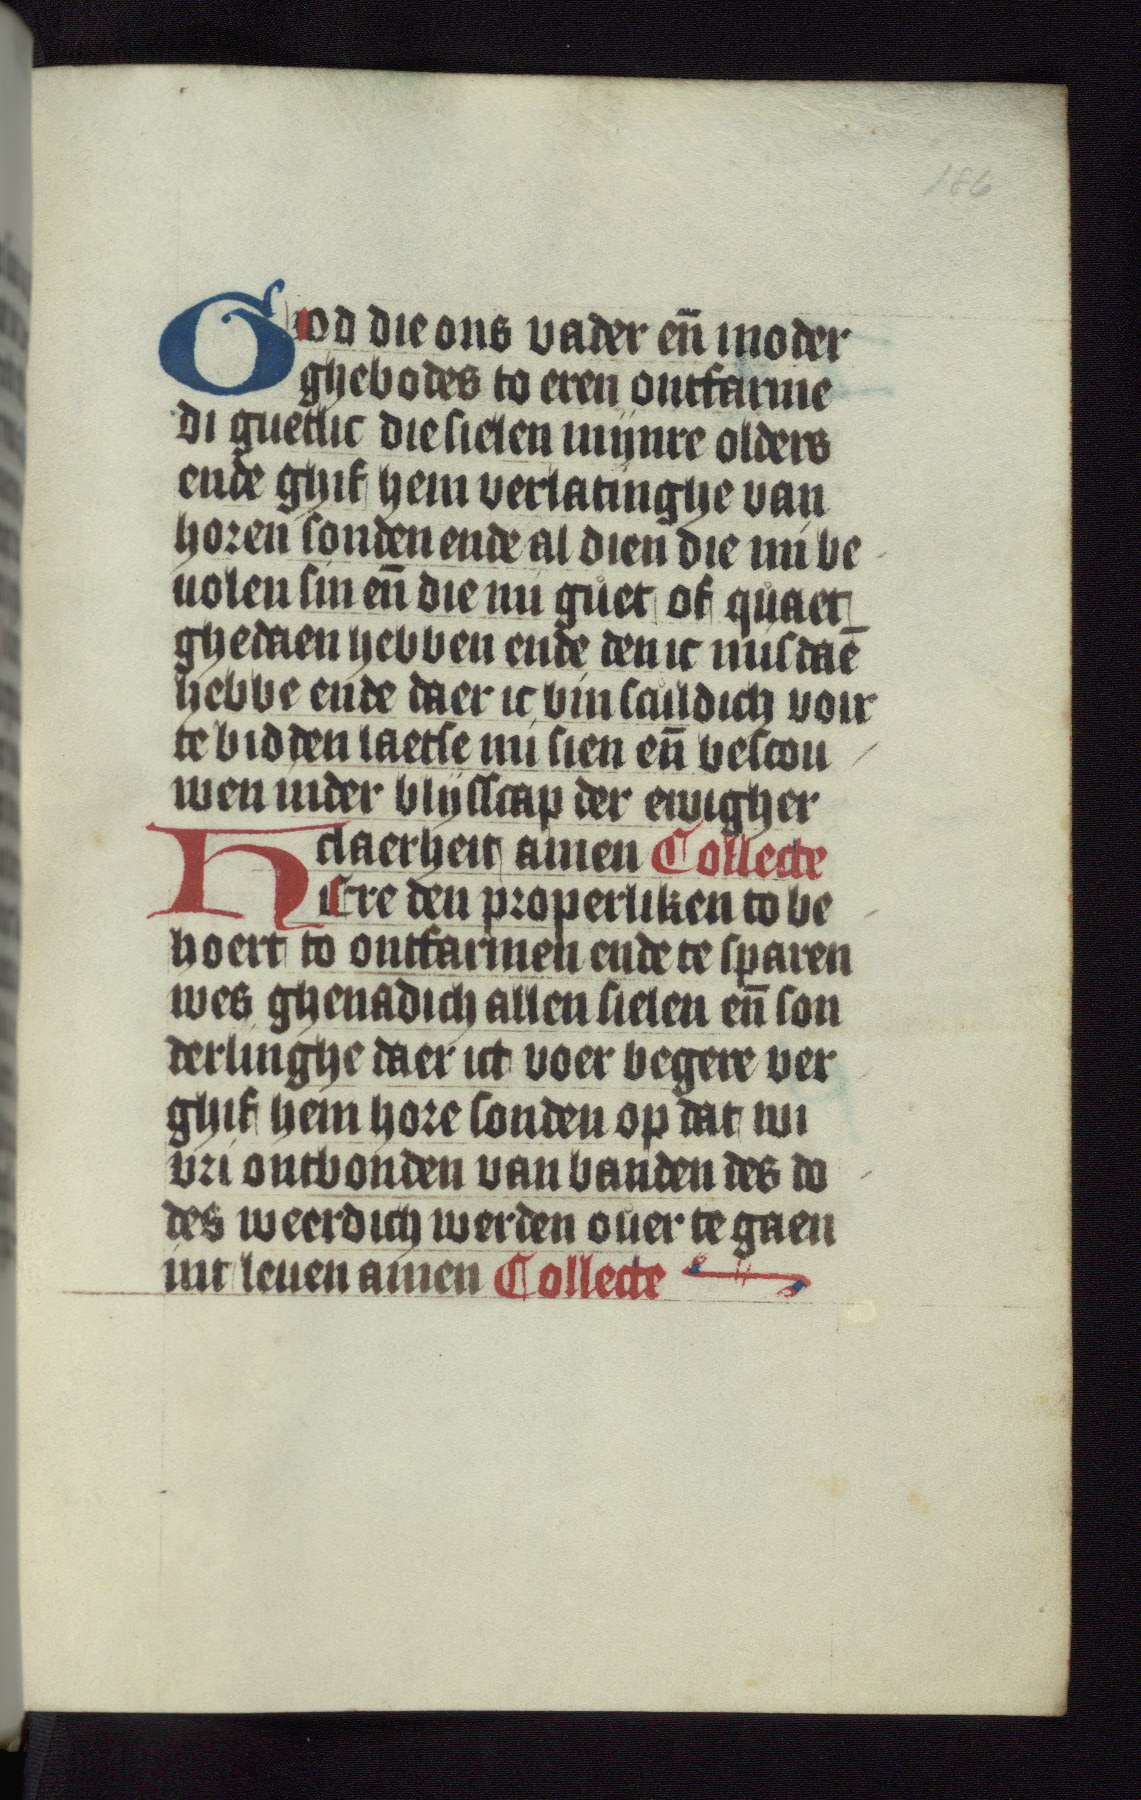 186
God die ons vader en̄ moder
ghebodes to eren ontfarme
di guetlic die sielen mijnre olders
ende ghif hem verlatinghe van
horen sonden ende al dien die mi be
uolen sin en̄ die mi guet of quaet
ghedaen hebben ende den ic misdaē
hebbe ende daer ic bin sculdich voir
te bidden laetse mi sien en̄ bescou
wen inder blijsscap der ewigher
claerheit amen Collecte
Here den properliken to be
hoert to ontfarmen ende te sparen
wes ghenadich allen sielen en̄ son
derlinghe daer ict voer begere ver
ghif hem hore sonden op dat wi
vri ontbonden van banden des do
des weerdich werden ouer te gaen
int leuen amen Collecte